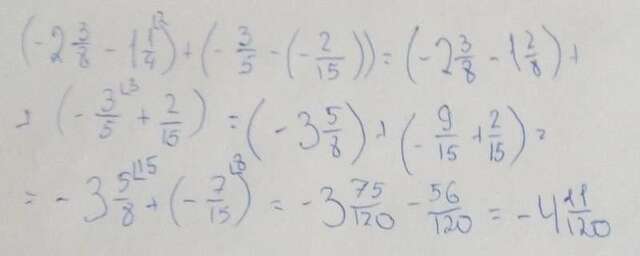 (-2 3/8 - 1 1/4^⌊2) + (-3/5 - (-2/15)) = (-2 3/8 - 1 2/8) +
+ (-3/5^⌊3 + 2/15) = (-3 5/8) + (-9/15 + 2/15) =
= -3 5/8^⌊15 + (-7/15^⌊8) = -3 75/120 - 56/120 = -4 11/120